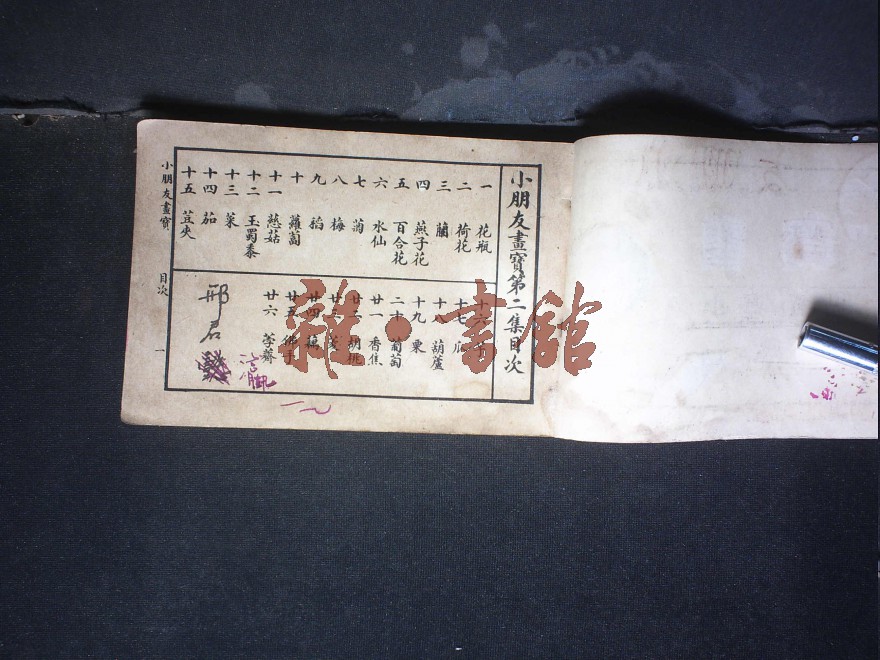 小朋友畫寶第二集目次
一 花瓶
二 荷花
三 蘭
四 燕子花
五 百合花
六 水仙
七 菊
八 梅
九 稻
十 蘿蔔
十一 慈菇
十二 玉蜀黍
十三 菜
十四 茄
十五 荳夾
十六
十七 瓜
十八 葫蘆
十九 栗
二十 葡萄
廿一 香焦
廿二 胡桃
廿三
廿四
廿五 佛手
廿六 荸薺
邢君
小朋友畫寶 目次 一
雜·書館